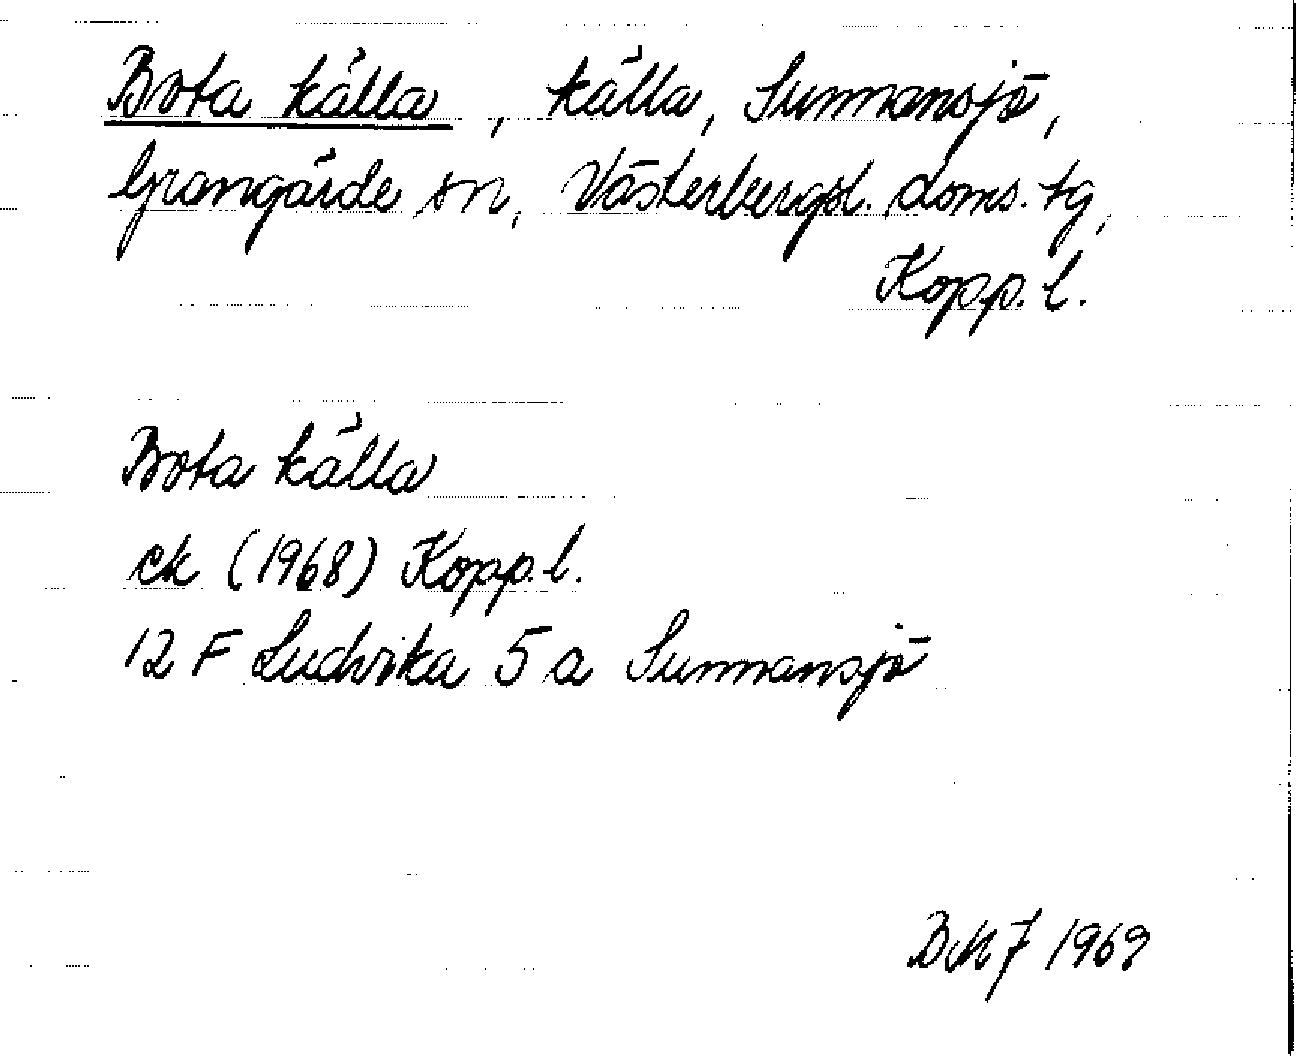 Bota källa, källa, Sunnansjö,
Grangärde sn, Västerbergsl. doms. tg,
Kopp. l.
Bota källa
ek (1968) Kopp. l.
12 F Ludvika 5 a Sunnansjö
1969